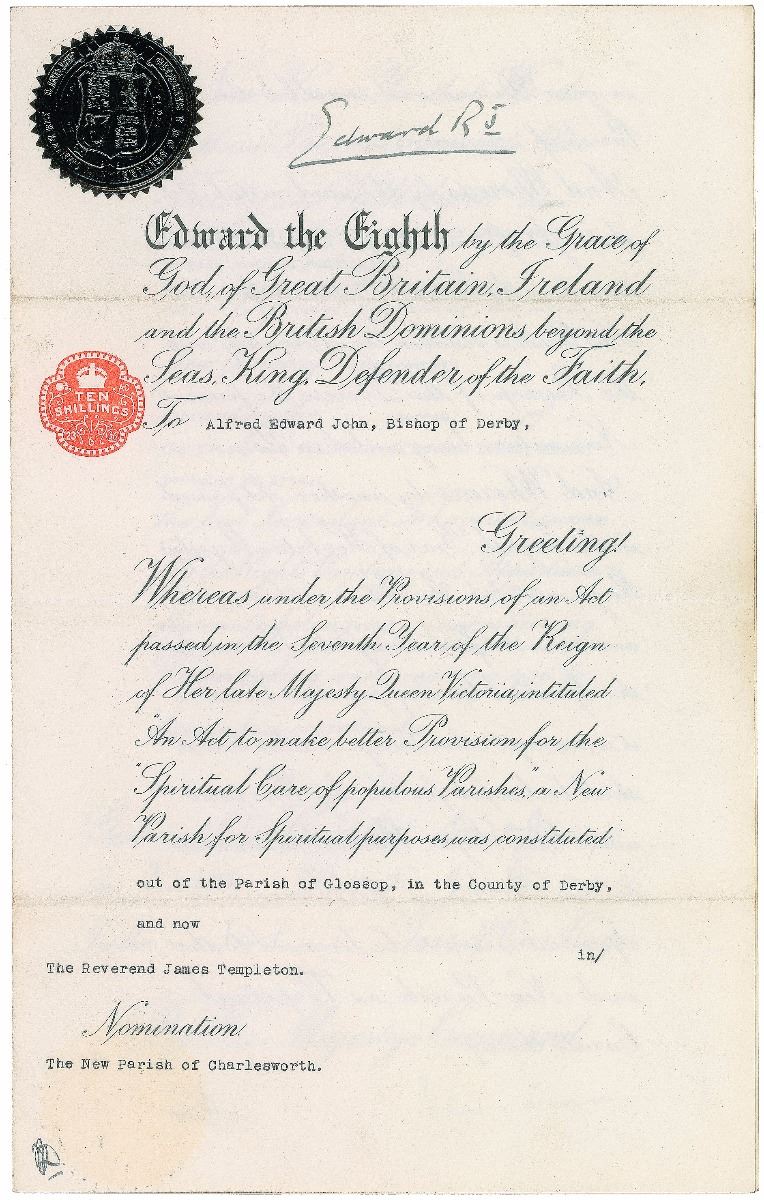 Edward R I
Edward the Eighth, by the Grace of
God, of Great Britain, Ireland
and the British Dominions beyond the
Seas, King, Defender of the Faith,
TEN
SHILLINGS
To Alfred Edward John, Bishop of Derby,
Greeting!
Whereas under the Provisions of an Act
passed in the Seventh Year of the Reign
of Her late Majesty Queen Victoria, intituled
"An Act to make better Provision for the
"Spiritual Care of populous Parishes," a New
Parish for Spiritual purposes was constituted
out of the Parish of Glossop, in the County of Derby,
and now
in/
The Reverend James Templeton.
Nomination
The New Parish of Charlesworth.